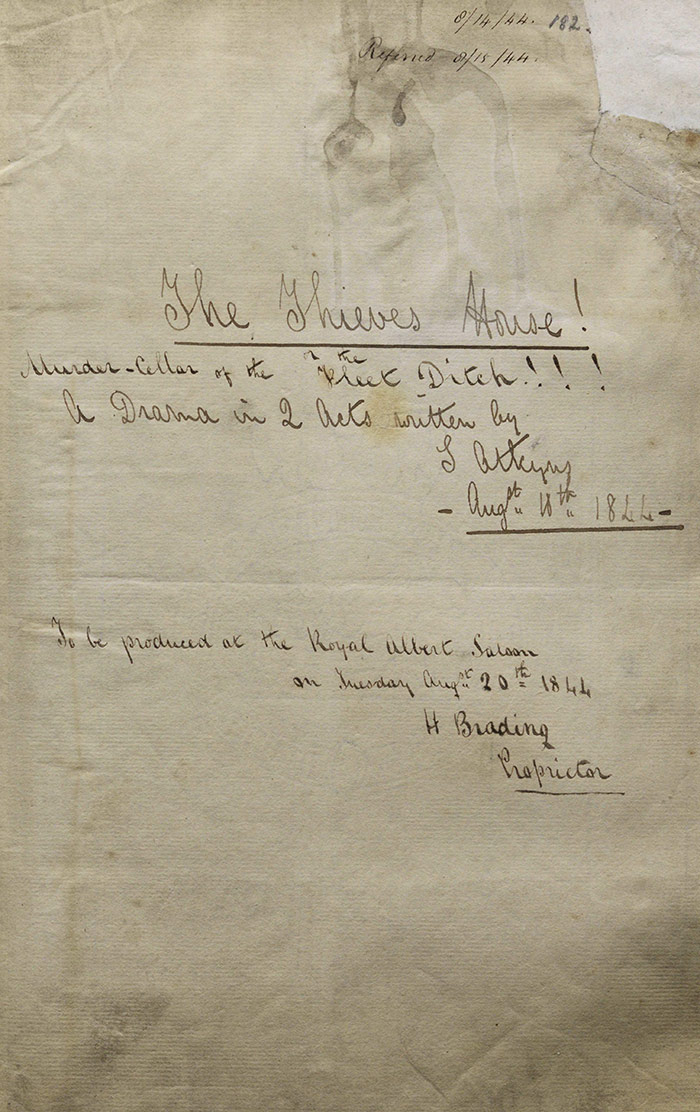 8/14/44. 182.
Referred 8/15/44.
The Thieves House!
or the
Murder-Cellar of the Fleet Ditch!!!!
A Drama in 2 Acts written by
S Atkyns
- Augst 10th 1844 -
To be produced at the Royal Albert Saloon
on Tuesday Augst 20th 1844
H Brading
Proprietor